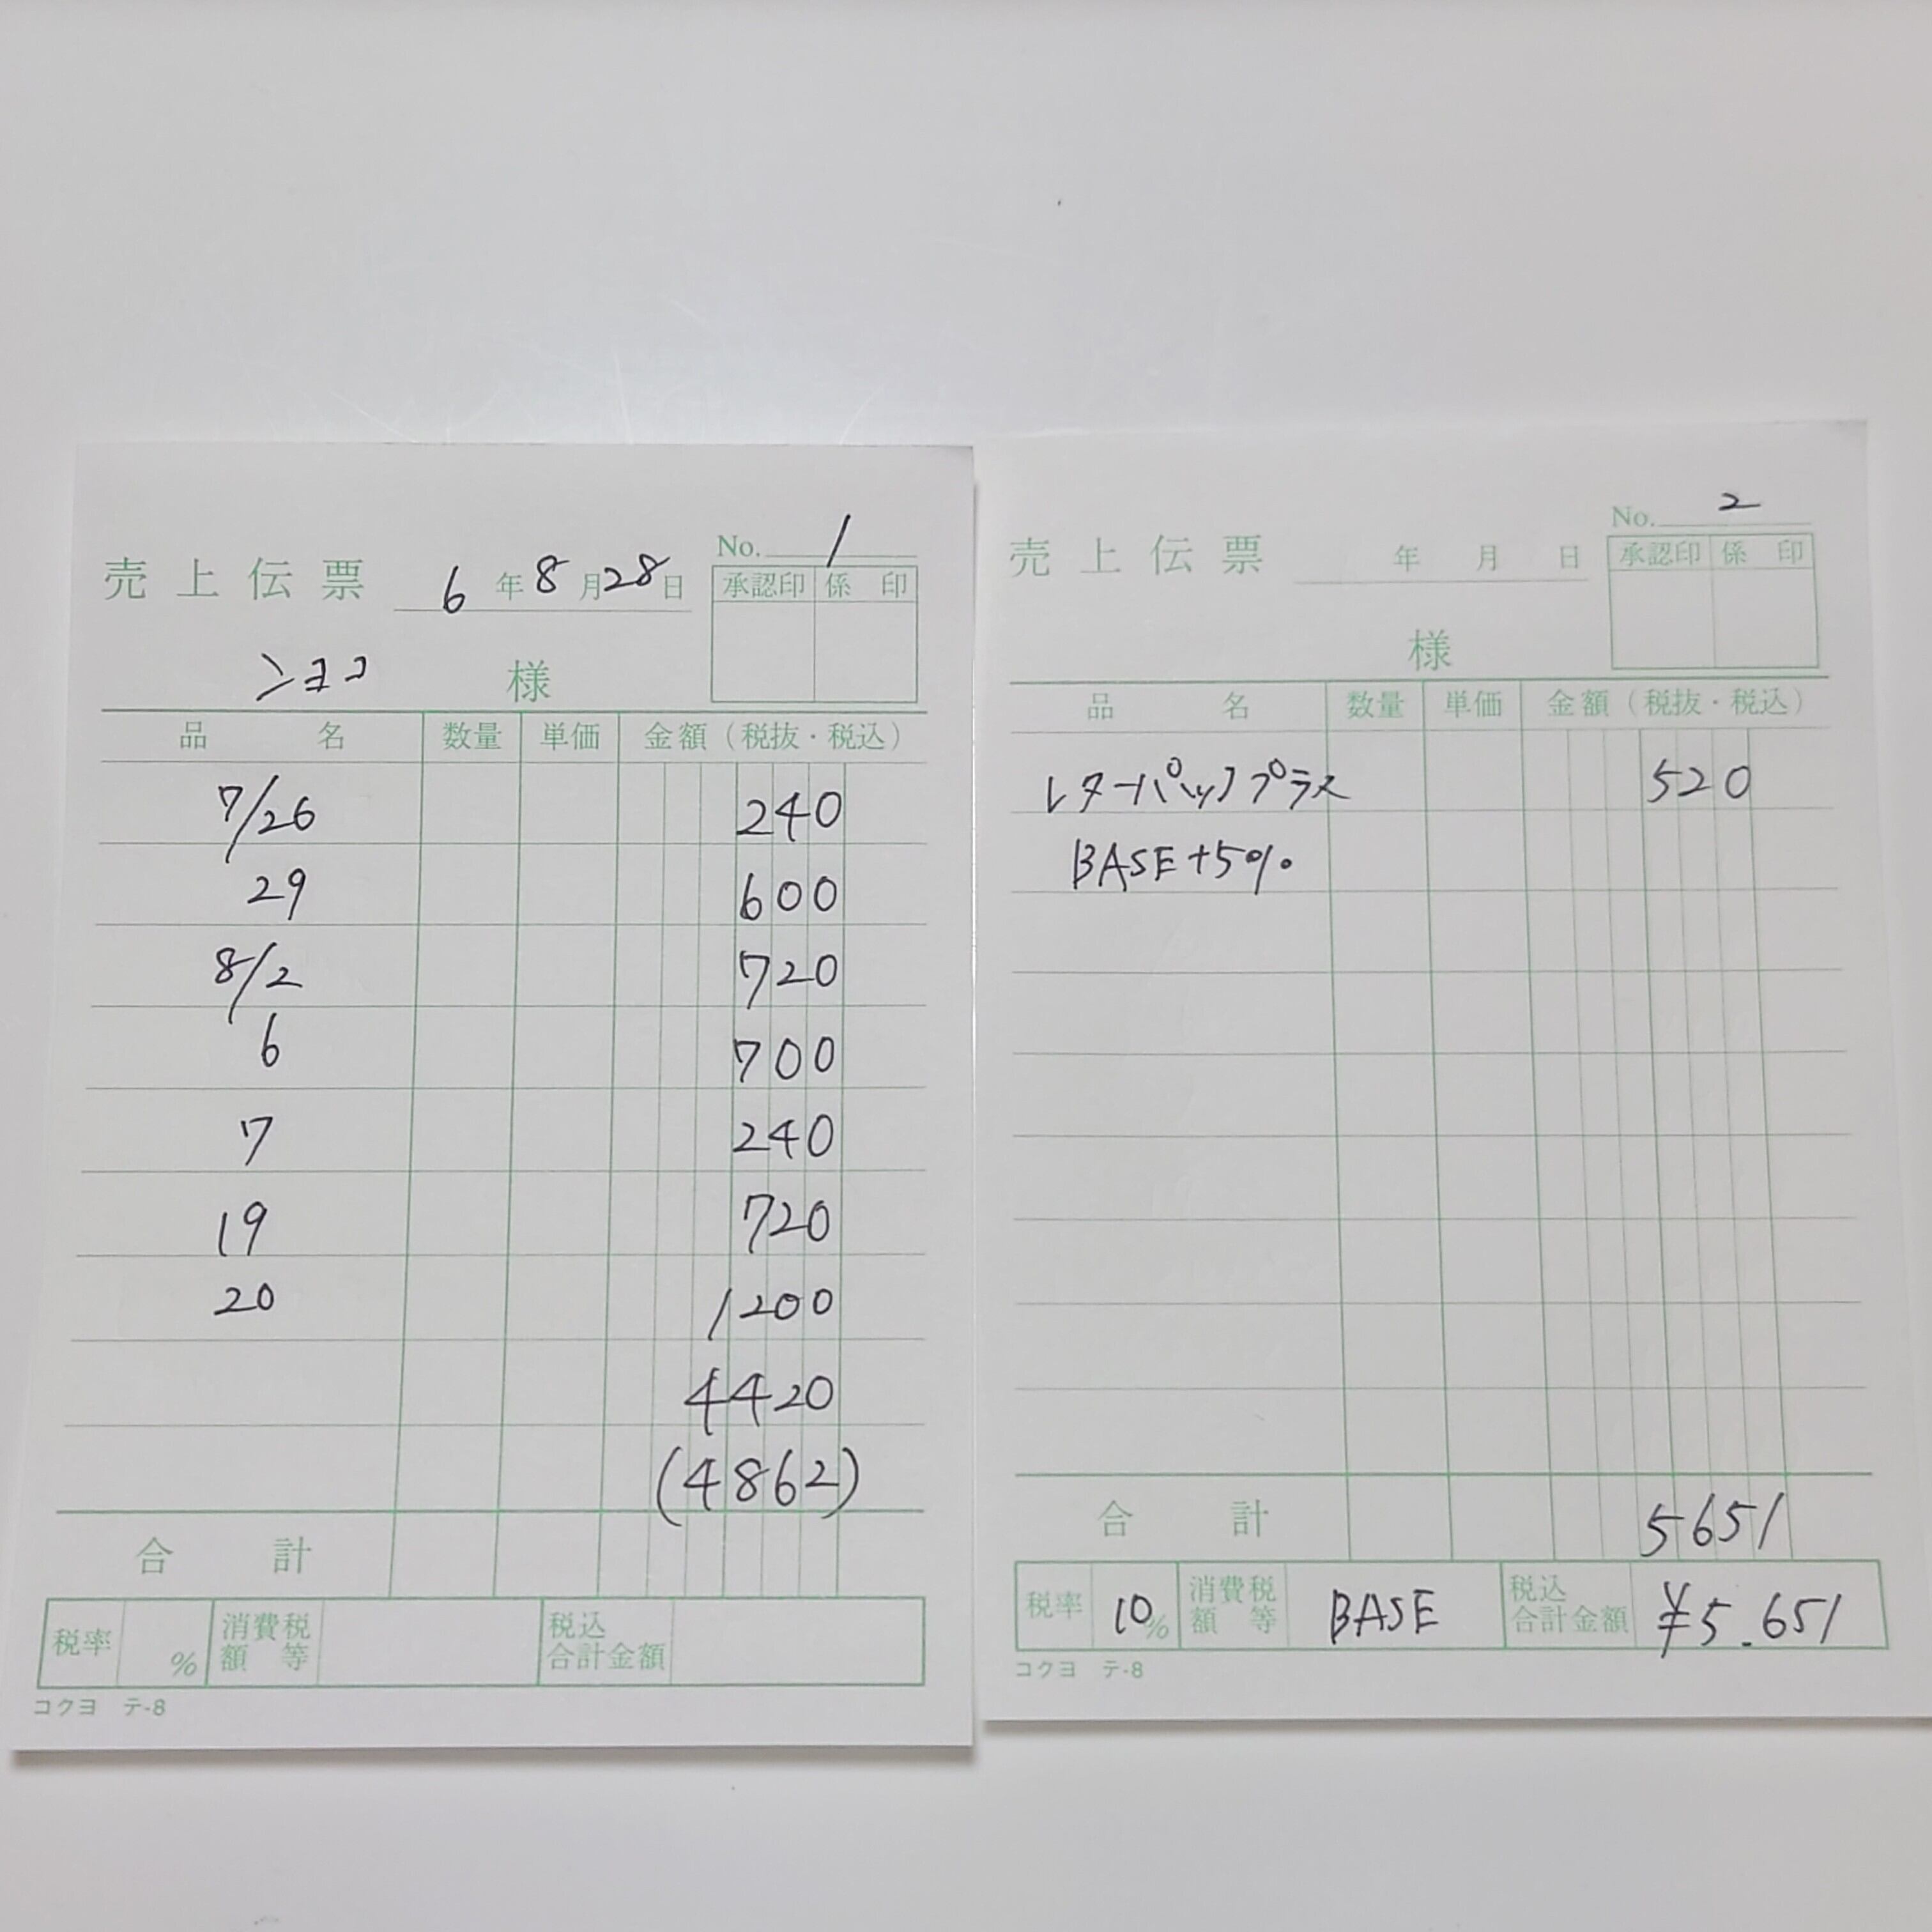 No. 1
売上伝票 6年8月28日
承認印 係印
ショコ 様
品名 数量 単価 金額(税抜・税込)
7/26 240
29 600
8/2 720
6 700
7 240
19 720
20 1200
4420
(4862)
合計
税率 % 消費税額等 税込合計金額
コクヨ テ-8
No. 2
売上伝票 年 月 日
承認印 係印
様
品名 数量 単価 金額(税抜・税込)
レターパックプラス 520
BASE+5%
合計 5651
税率 10% 消費税額等 BASE 税込合計金額 ¥5.651
コクヨ テ-8